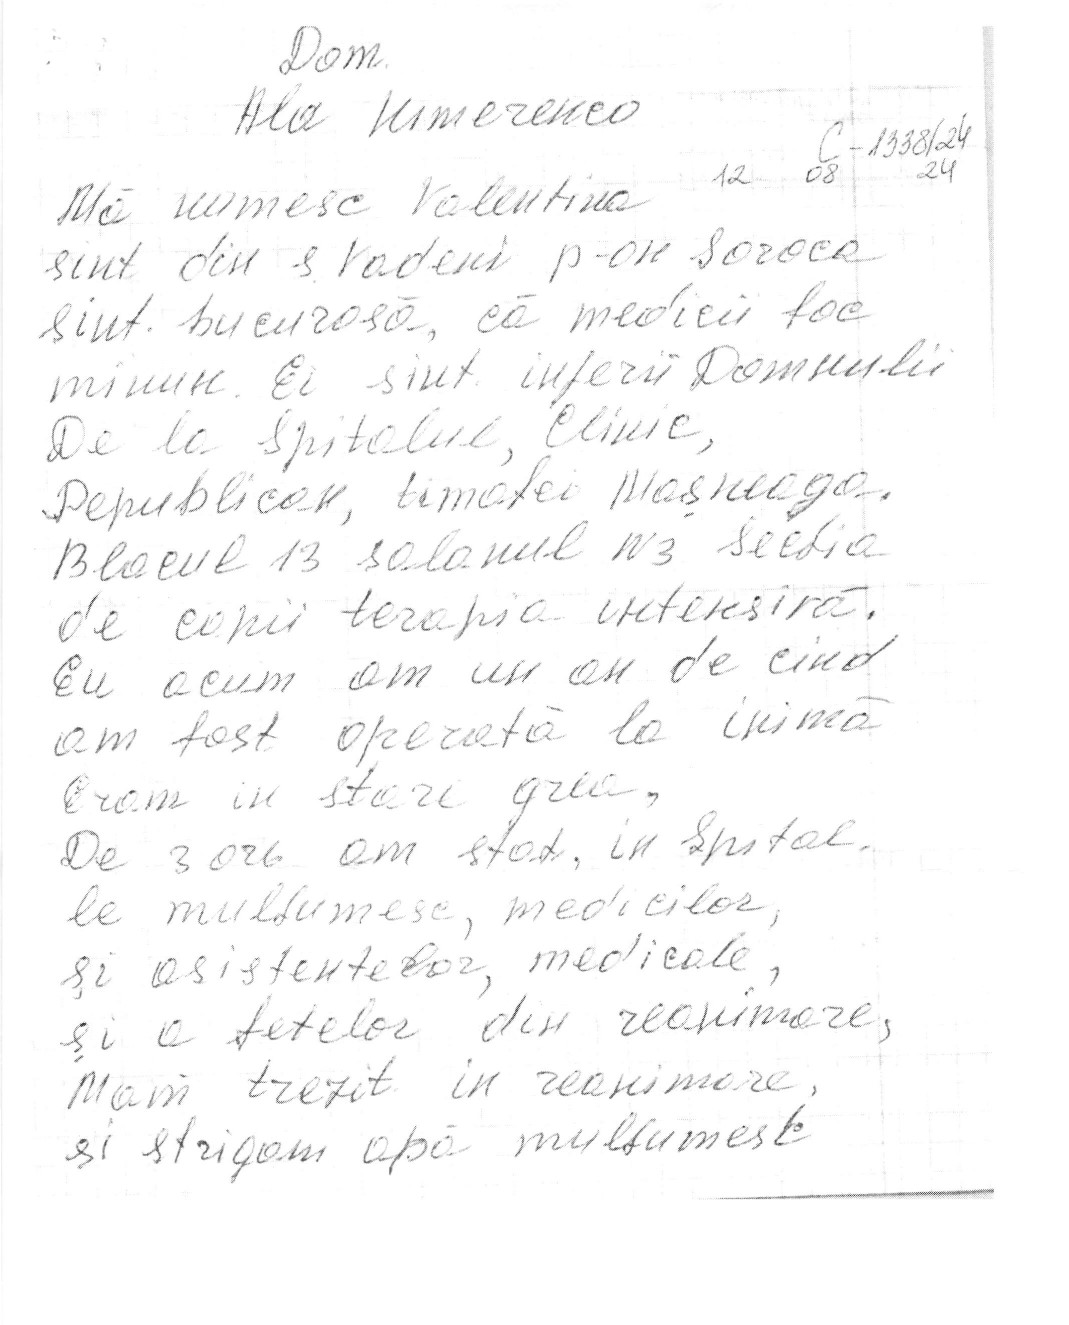 Dom.
Ala Nemerenco
C-1338/24
12 08 24
Mă numesc Valentina
sint din s. Vadeni p-on Soroca
sint. bucurosă, că medicii fac
minun. Ei sint. inferii Domnului
De la Spitalul, Clinic,
Republican, timofei Moșneaga.
Blocul 13 salonul N3 Secția
de copii terapia intensivă.
Eu acum am un an de cind
am fost operată la inimă
Eram in stare grea,
De 3 ori am stat, in Spital.
le mulțumesc, medicilor,
și asistentelor, medicale,
și a fetelor din reanimare,
Mam trezit in reanimare,
și strigam apă mulțumesc